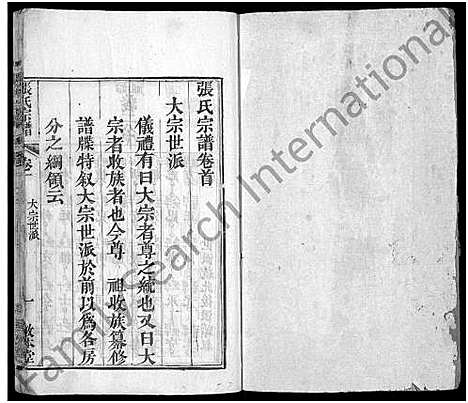 張氏宗譜卷首
大宗世派
儀禮有曰大宗者尊之統也又曰大
宗者收族者也今尊 祖收族纂修
譜牒特叙大宗世派於前以為各房
分之綱領云
張氏宗譜
卷
大宗世派
一
敦本堂
FamilySearch International